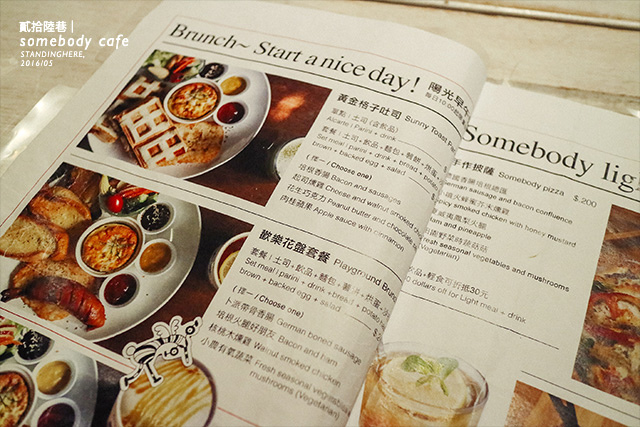 貳拾陸巷 |
somebody cafe
STANDINGHERE,
2016/05
Brunch~ Start a nice day!
陽光早午
每日10:00
黃金格子吐司 Sunny Toast
單點:土司(含飲品)
Alcarte : Panini + drink
套餐:土司+飲品+麵包+薯
Set meal : panini + drink + bread
brown + backed egg + salad
(擇一 / Choose one)
培根香腸 Bacon and sausages
起司燻雞 Cheese and walnut smoked
花生巧克力 Peanut butter and chocolate
肉桂蘋果 Apple sauce with cinnamon
歡樂花盤套餐 Playground Brun
套餐:土司+飲品+麵包+
Set meal : panini + drink + bread +
brown + backed egg + salad
(擇一 / Choose one)
卜派帶骨香腸 German boned sausage
培根火腿好朋友 Bacon and ham
核桃木燻雞 Walcut smoked chicken
小農有氣蔬菜 Fresh seasonal vegetables
mushrooms (Vegetarian)
Somebody lig
手作披薩 Somebody pizza $ 200
德國香腸培根總匯
German sausage and bacon confluence
Spicy smoked chicken with honey mustard
夏威夷鳳梨火腿
ham and pineapple
田園野菜時蔬菇菇
Fresh seasonal vegetables and mushrooms
(Vegetarian)
飲品+輕食可折抵30元
0 dollars off for Light meal + drink